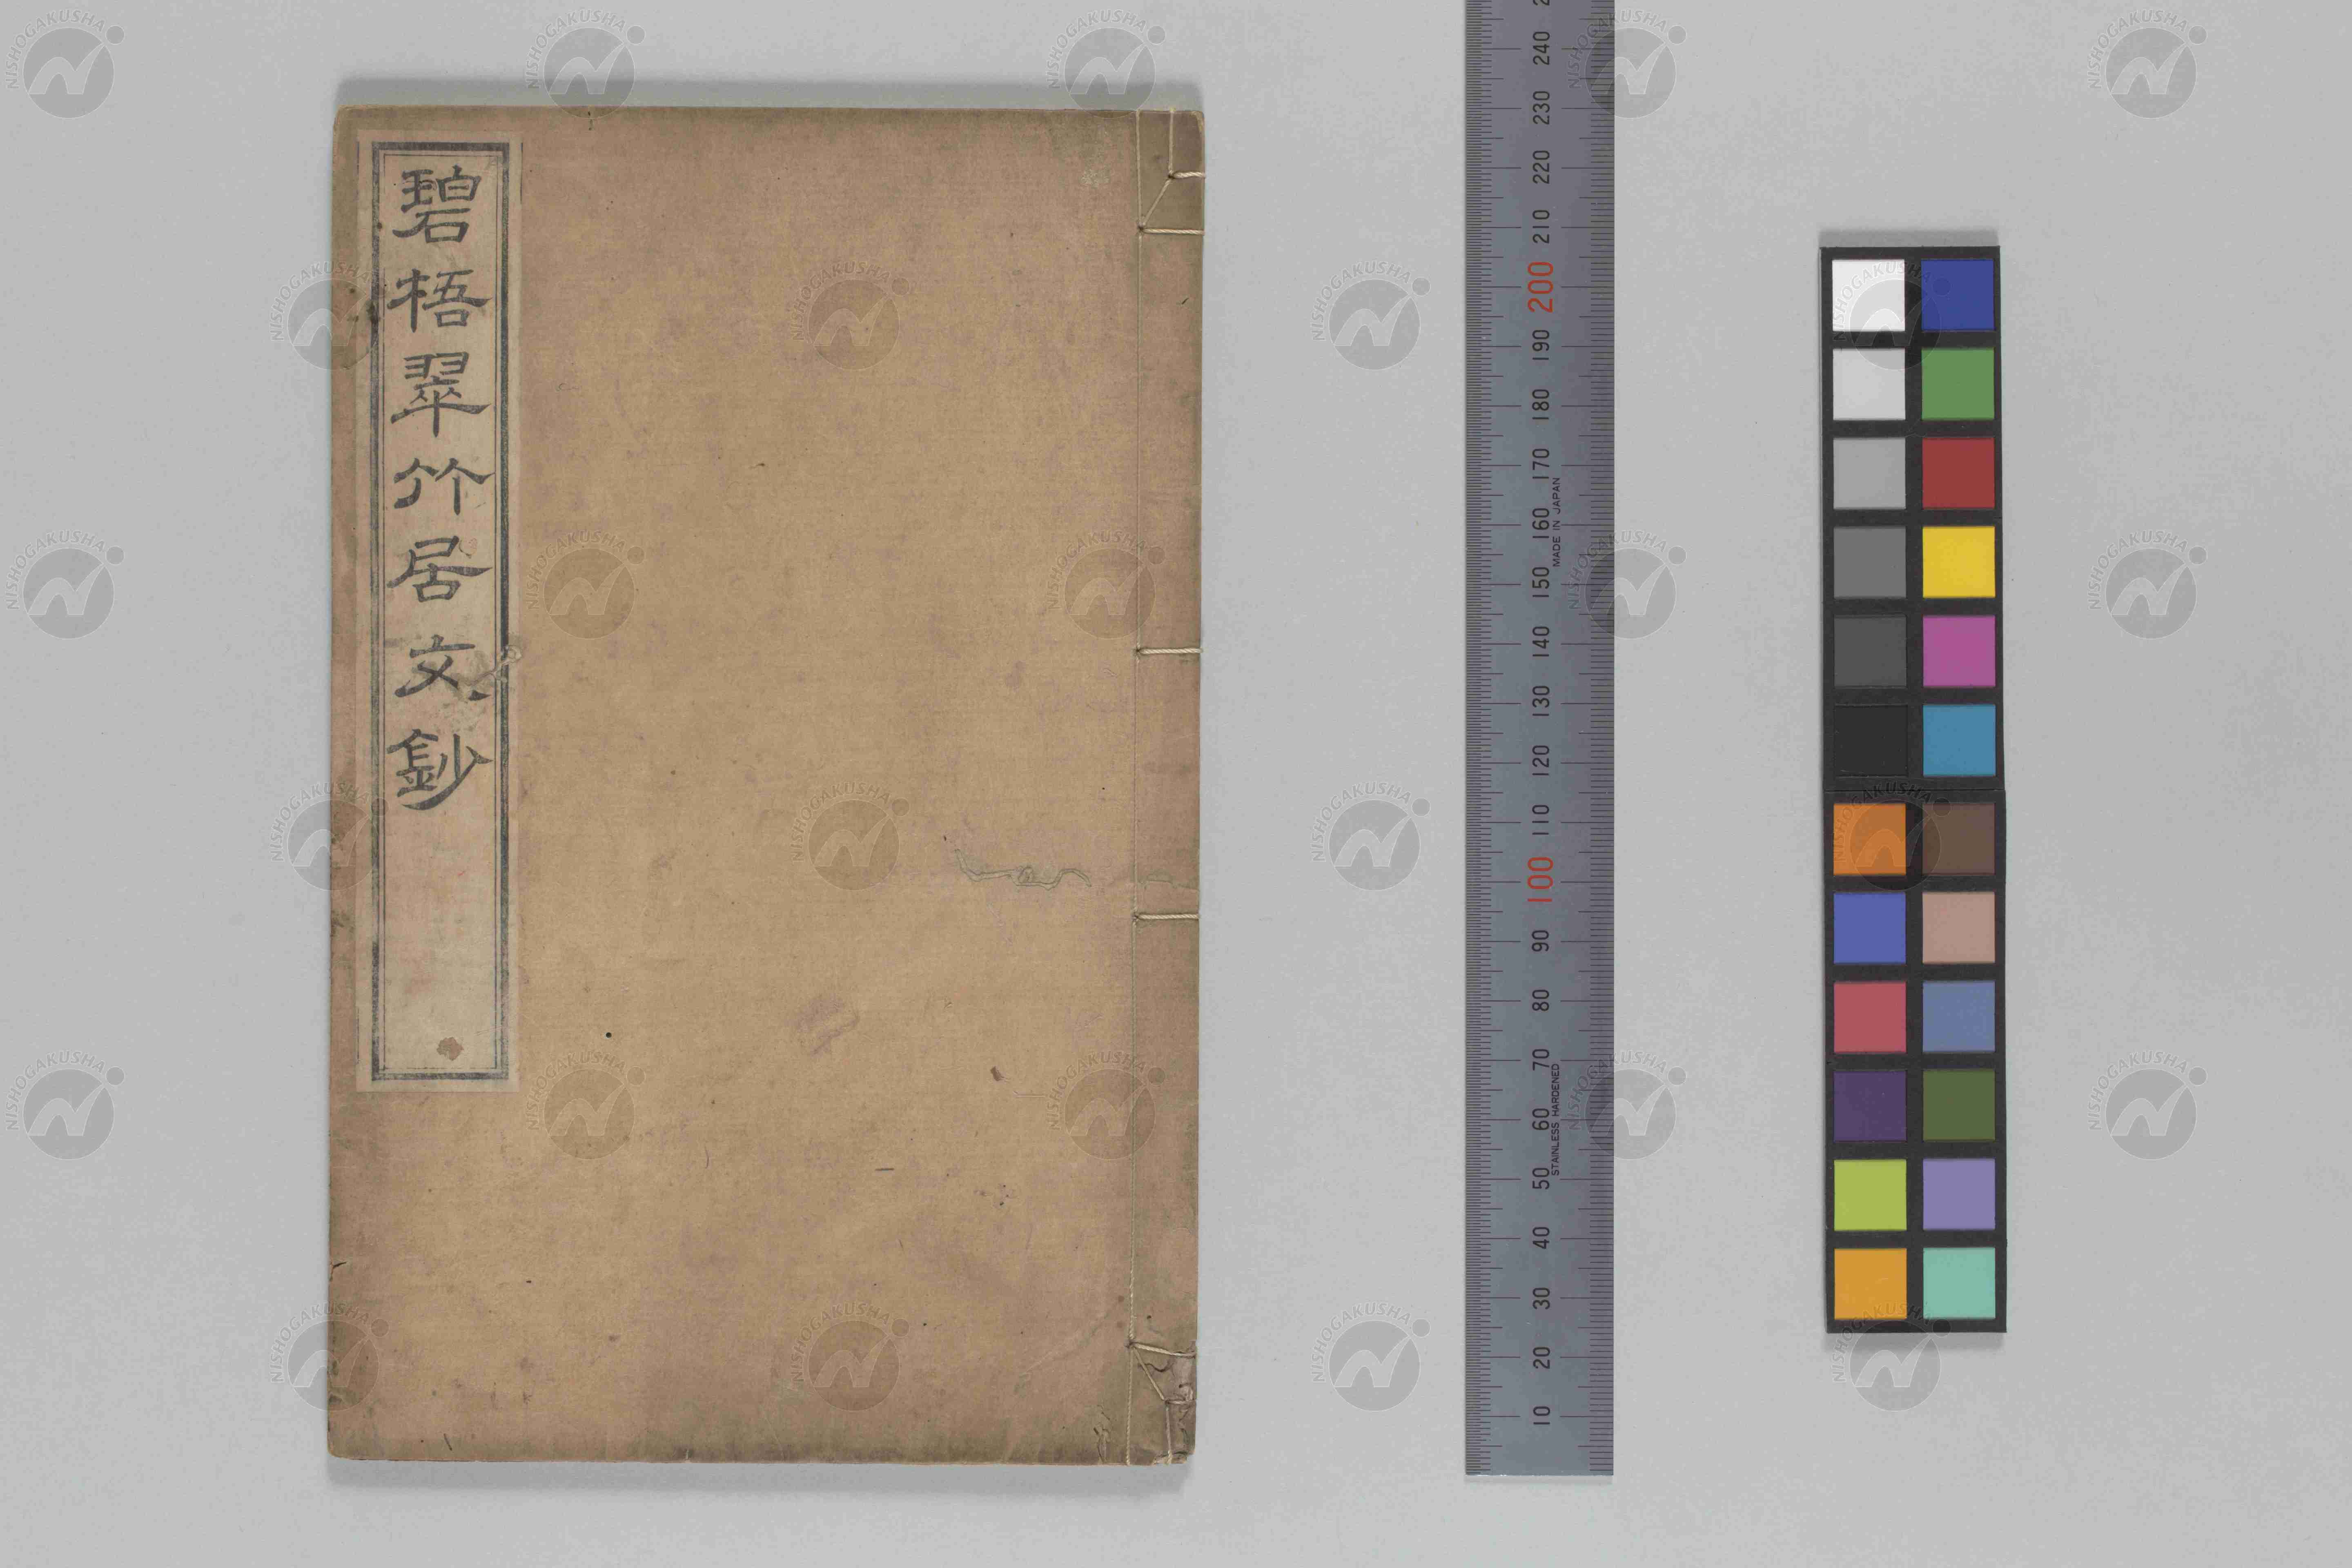 碧梧翠竹居文鈔
240
230
220
210
200
190
180
170
MADE IN JAPAN
160
150
140
130
120
110
100
90
80
70
STAINLESS HARDENED
60
50
40
30
20
10
NISHOGAKUSHA